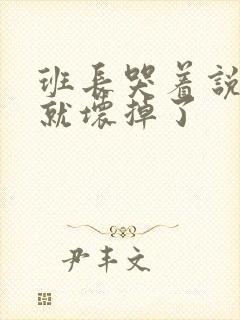 班長哭着說
就壞掉了
尹丰文